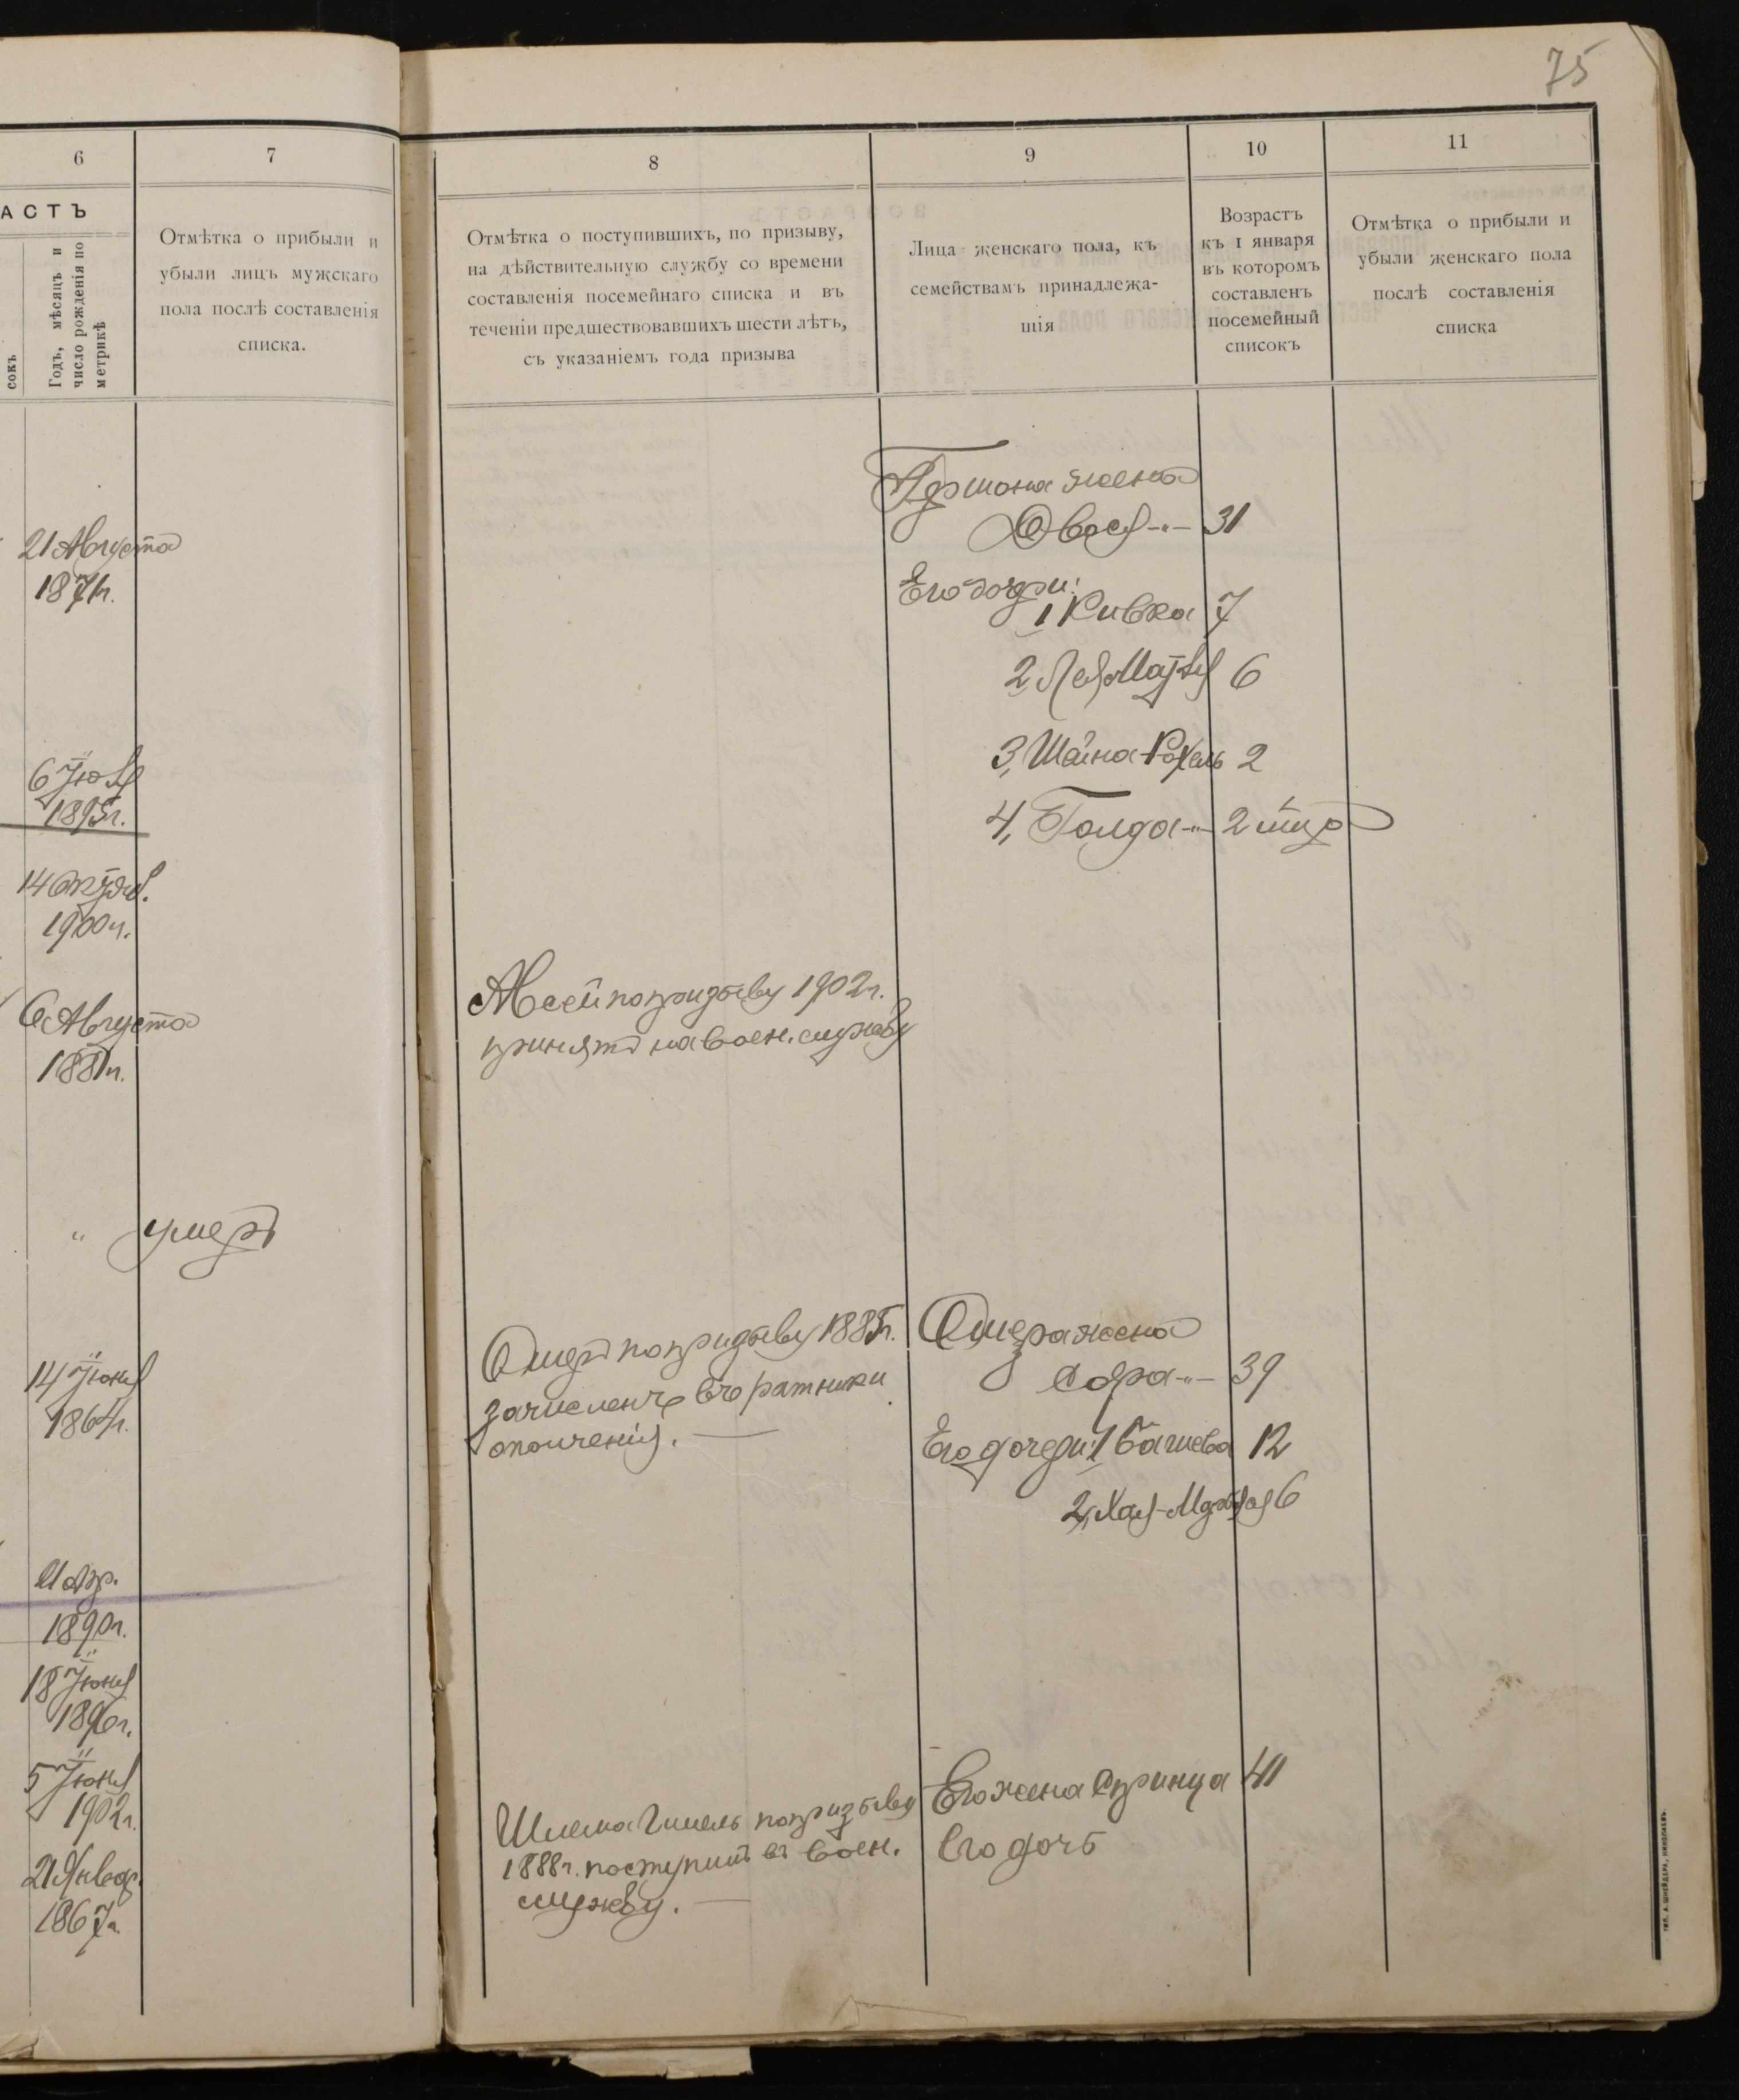 75
6
7
8
9
10
11
АСТЪ
сокъ
Годъ, мѣсяцъ и
число рожденія по
метрикѣ
Отмѣтка о прибыли и
убыли лицъ мужскаго
пола послѣ составленія
списка.
Отмѣтка о поступившихъ, по призыву,
на дѣйствительную службу со времени
составленія посемейнаго списка и въ
теченіи предшествовавшихъ шести лѣтъ,
съ указаніемъ года призыва
Лица женскаго пола, къ
семействамъ принадлежа-
щія
Возрастъ
къ 1 января
въ которомъ
составленъ
посемейный
списокъ
Отмѣтка о прибыли и
убыли женскаго пола
послѣ составленія
списка
Гершона жена
Двося -"- 31
21 Августа
1871г.
Его дочери:
1 Ривка 7
2, Лея 6
3, Шейна-Рохель 2
6 Іюля
1895г.
4, Голда -"- 2
14 Октяб.
1900г.
по призыву 1902г.
принятъ на воен. службу
6 Августа
1881г.
" умеръ
Ошеръ по призыву 1885г.
зачисленъ въ ратники
ополченія. —
Ошера жена
Сора -"- 39
14 Іюня
1864г.
Его дочери: 1 Башева 12
2, Хая- 6
21 Апр.
1890г.
18 Іюня
1896г.
5 Іюня
1902г.
21 Январ.
1867г.
Шлема Гимель по призыву
1888г. поступилъ въ воен.
службу. —
Его жена Сринца 41
Его дочь
ТИП. А. ШНЕЙДЕРА, НИКОЛАЕВЪ.